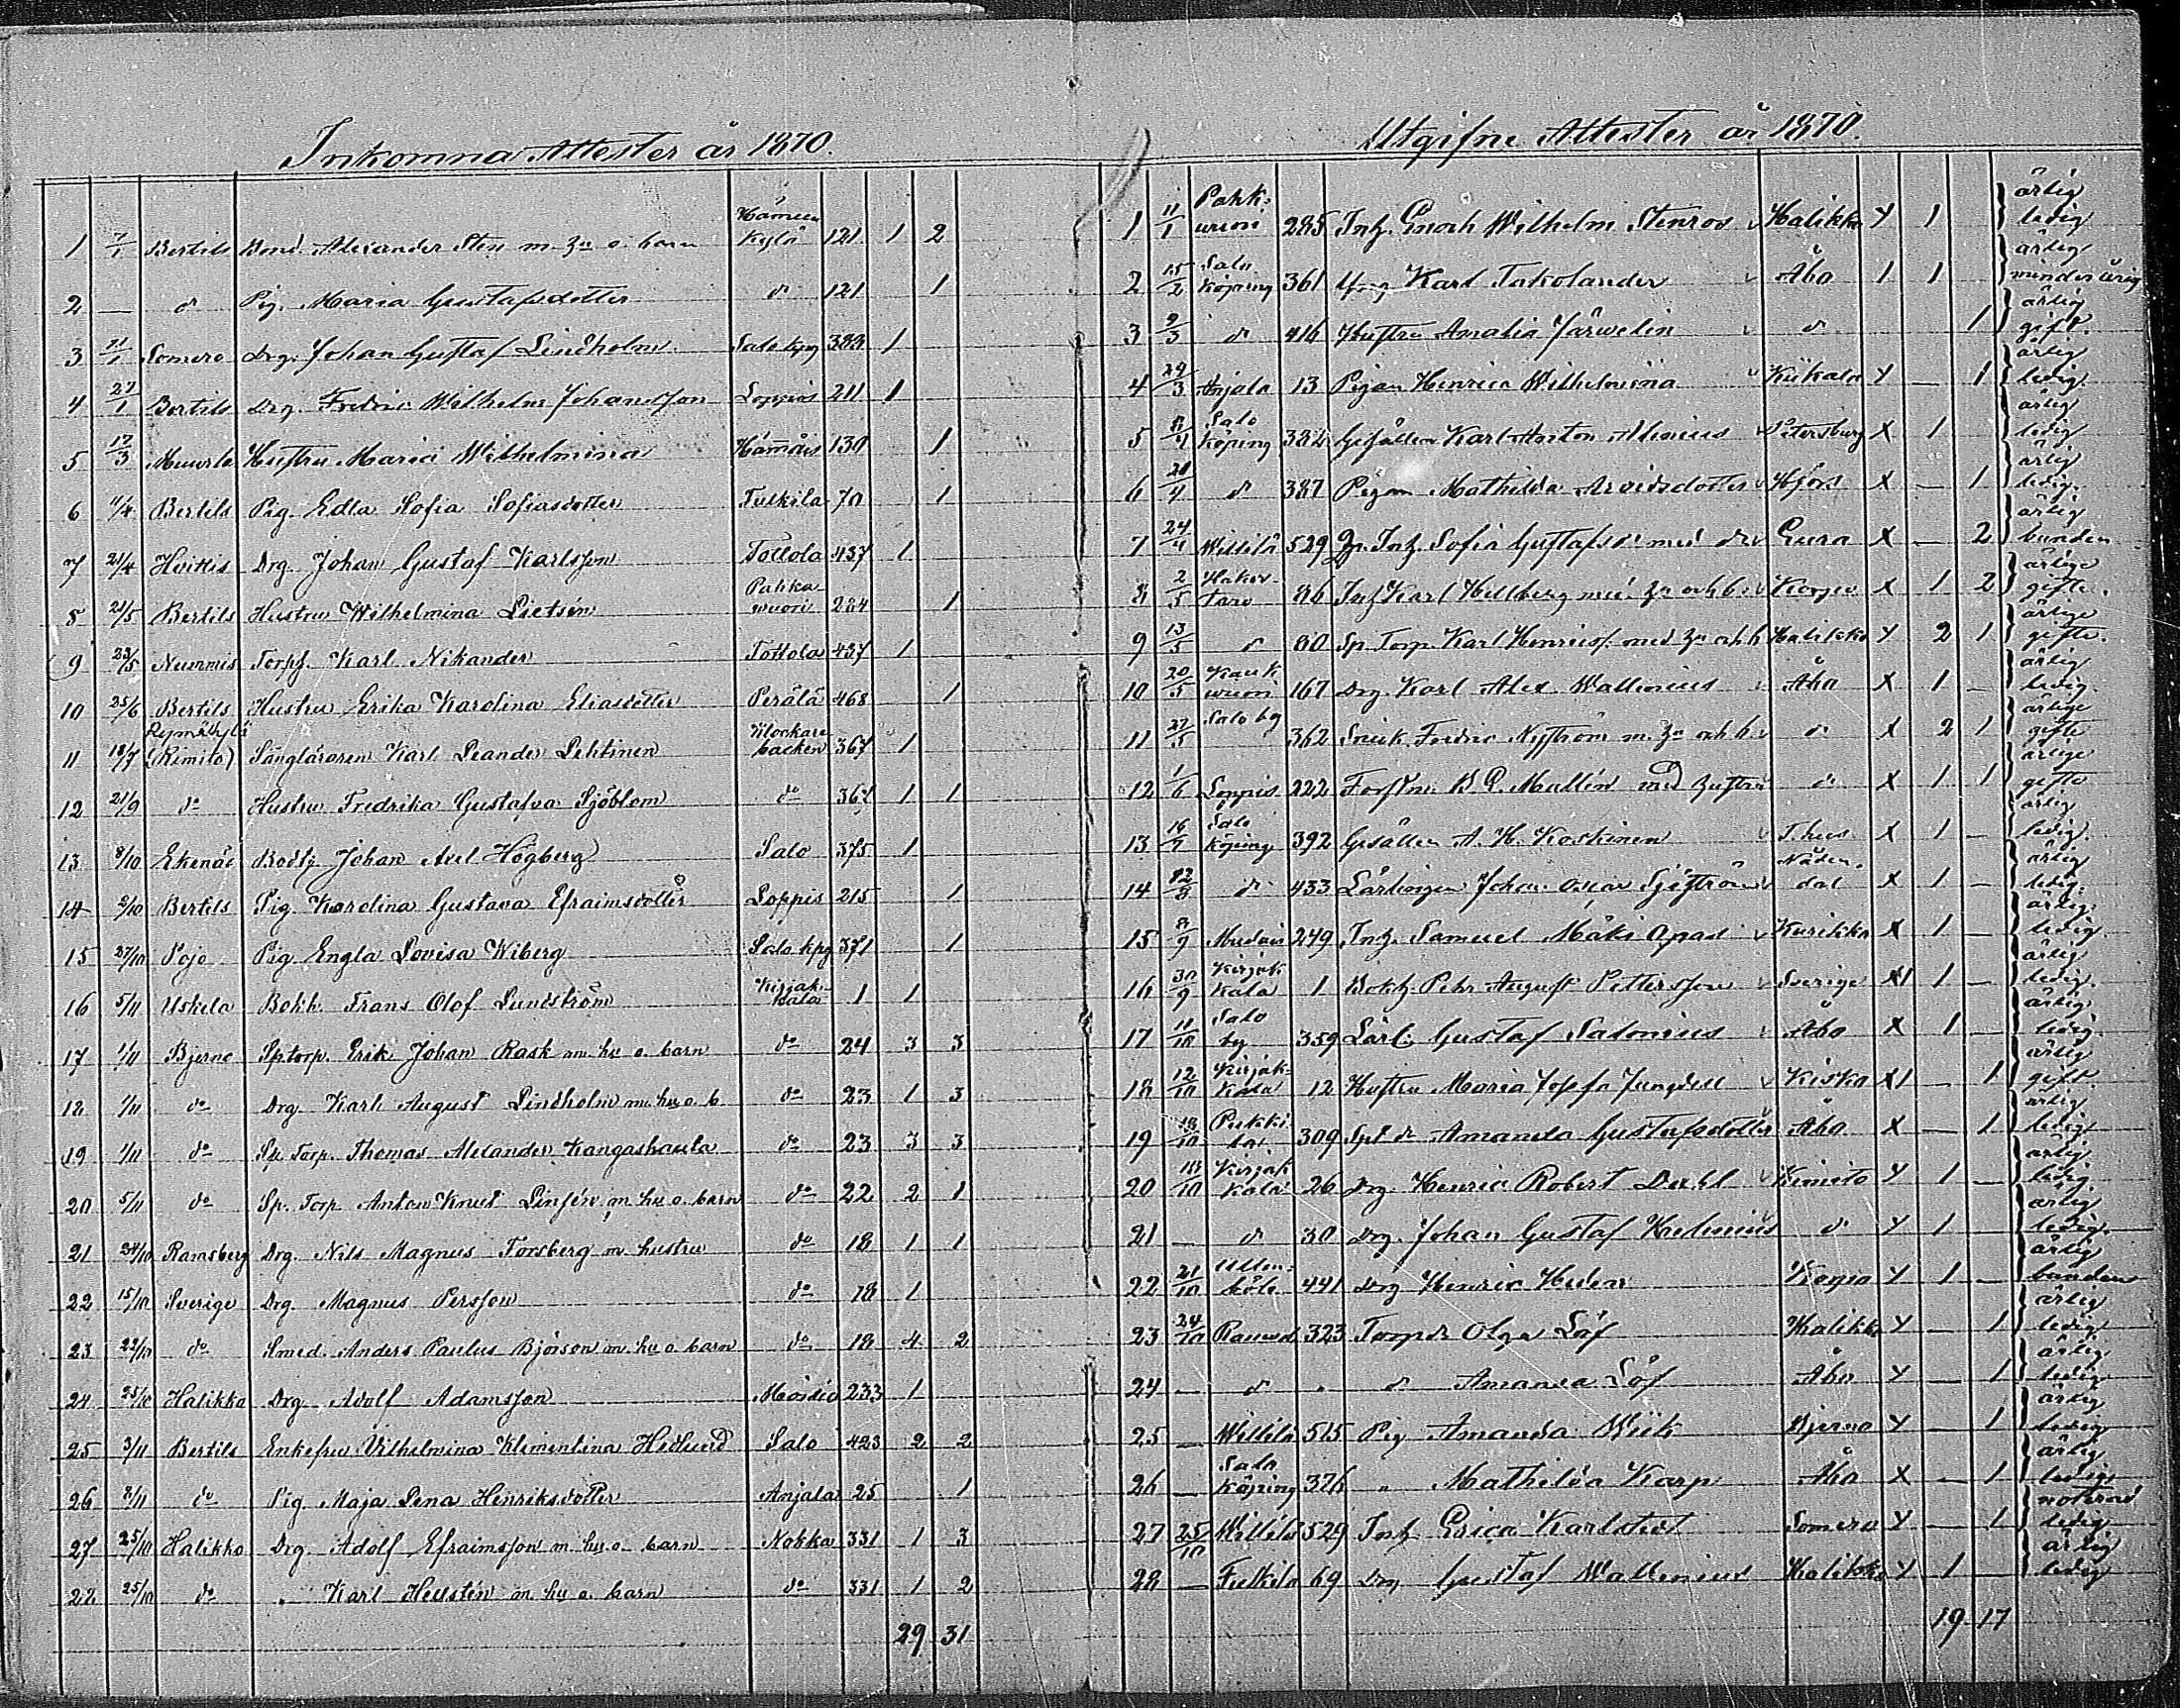 Inkomna Attester år 1870.
1 7/1 Bertils Bond. Alexander Sten m. hu o. barn Hämeenkylä 121 1 2
2 — do Pig. Maria Gustafsdotter do 121 1
3 21/1 Somero Drg. Johan Gustaf Lindholm Salo kpg 389 1
4 27/1 Bertils Drg. Fredric Wilhelm Johansson Loppis 211 1
5 17/3 Muurla Hustru Maria Wilhelmina 130 1
6 11/4 Bertils Pig. Edla Sofia Sofiasdotter Fulkila 70 1
7 21/4 Hvittis Drg. Johan Gustaf Karlsson Tottola 437 1
8 21/5 Bertils Hustru Wilhelmina Lietsén Pahkavuori 284 1
9 23/5 Nummis Torpf. Karl Nikander Tottola 437 1
10 25/6 Bertils Hustru Erika Karolina Eliasdotter Perälä 468 1
11 18/7 Rymättylä (Rimito) Sångläraren Karl Leander Lehtinen Klockarebacken 367 1
12 21/9 do Hustru Fredrika Gustafva Sjöblom do 367 1 1
13 8/10 Ekenäs Bodbtj. Johan Axel Högberg Salo 375 1
14 8/10 Bertils Pig. Karolina Gustava Efraimsdotter Loppis 215 1
15 27/10 Pojo Pig. Engla Lovisa Wiberg Salo kpg 371 1
16 5/11 Uskela Bokh. Frans Olof Lundström Kirjakkala 1 1
17 1/11 Bjerno Sptorp. Erik Johan Rask m. hu o. barn do 24 3 3
18 1/11 do Drg. Karl August Lindholm m. hu o. b do 23 1 3
19 1/11 do Sp Torp. Thomas Alexander Kangashauta do 23 3 3
20 5/11 do Sp. Torp. Anton Knut Linsén m hu o. barn do 22 2 1
21 24/10 Ramsberg Drg. Nils Magnus Forsberg m hustru do 18 1 1
22 15/10 Sverige Drg. Magnus Persson do 18 1
23 22/10 do Smed. Anders Paulus Björson m. hu o. barn do 18 4 2
24 25/10 Halikko Drg. Adolf Adamsson Moisio 233 1
25 3/11 Bertils Enkefru Vilhelmina Klimentina Hedlund Salo 423 2 2
26 8/11 do Pig. Maja Lena Henriksdotter Anjala 25 1
27 25/10 Halikko Drg. Adolf Efraimsson m hu o. barn Nokka 331 1 3
28 25/10 do " Karl Hellstén m. hu o. barn do 331 1 2
29 31
Utgifne Attester år 1870.
1 11/1 Pahkavuori 285 Inh. Enoch Wilhelm Stenros Halikko X 1 ärlig ledig
2 15/2 Salo Köping 361 Karl Takolander Åbo 1 1 ärlig minderårig
3 9/3 do 416 Hustru Amalia Järwelin do 1 ärlig gift.
4 29/3 Anjala 13 Pigan Henrica Wilhelmina Kiikala X — 1 ärlig ledig.
5 8/4 Salo Köping 382 Gesällen Karl Anton Alenius Petersburg X 1 ärlig ledig
6 21/4 do 387 Pigan Mathilda Arvidsdotter Hfors X — 1 ärlig ledig.
7 24/4 Willilä 529 Inh. Sofia Gustafsd. med dr Eura X — 2 ärlig bunden
8 2/5 86 Inh Karl Hellberg med hu och b. X 1 2 ärlige gifte.
9 13/5 do 80 Sp. Torp. Karl Henrics. med hu och b Halikko X 2 1 ärlige gifte.
10 20/5 167 Drg. Karl Alex Wallenius Åbo X 1 — ärlig ledig.
11 27/5 Salo by 362 Fredric Nyström m. hu och b. do X 2 1 ärlige gifte
12 1/6 Loppis 222 Mallén med hustru do X 1 1 ärlige gifte
13 16/7 Salo köping 392 Gesällen A. H. Koskinen T.hus X 1 — ärlig ledig.
14 12/8 do 433 Lärlingen Johan Oscar Sjöström Nådendal X 1 — ärlig ledig.
15 8/9 249 Inh. Samuel Mäki Opas Kurikka X 1 ärlig ledig
16 30/9 Kirjakkala 1 Bokh. Pehr August Pettersson Sverige X1 1 — ärlig ledig.
17 11/10 Salo by 359 Lärl. Gustaf Salonius Åbo X 1 ärlig ledig.
18 12/10 Kirjakkala 12 Hustru Maria Josefa Jungdell Kisko X1 — 1 ärlig gift.
19 18/10 Pukkila 309 Amanda Gustafsdotter Åbo X — 1 ärlig ledig
20 18/10 Kirjakkala 26 Drg. Henric Robert Dahl Kimito X 1 — ärlig ledig
21 — do 30 Drg. Johan Gustaf do X 1 ärlig ledig.
22 21/10 441 Drg Henric X 1 — ärlig bunden
23 24/10 323 Torpdr Olga Löf Halikko X — 1 ärlig ledig
24 — do " do Amanda Löf Åbo X — 1 ärlig ledig
25 — Willilä 515 Pig Amanda Wiik Bjerno X — 1 ärlig ledig
26 — Salo Köping 376 " Mathilda Karp Åbo X — 1 ärlig ledig
27 25/10 Willilä 529 Inh Erica Karlstedt Somero X — 1 noterad ledig
28 — Fulkila 69 Drg Gustaf Wallenius Halikko X 1 — ärlig ledig
19 17